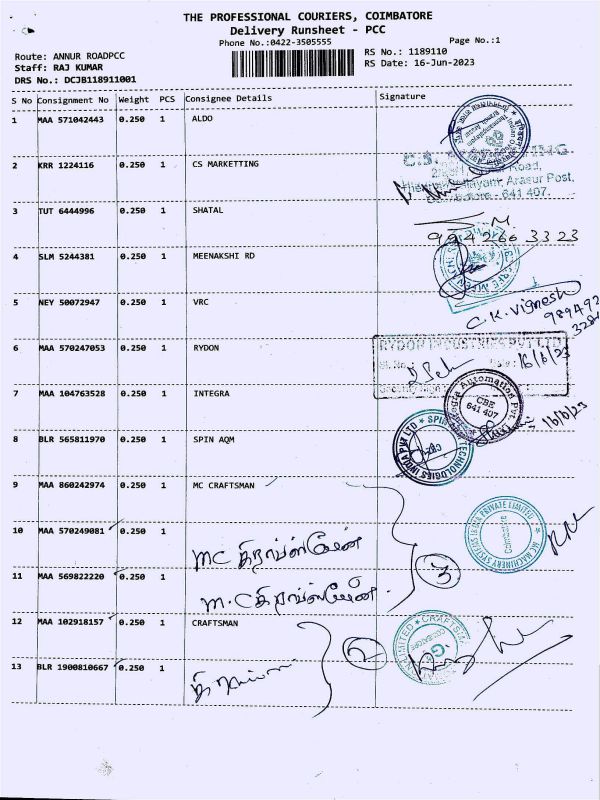 THE PROFESSIONAL COURIERS, COIMBATORE
Delivery Runsheet - PCC
Phone No.:0422-3505555
Page No.:1
Route: ANNUR ROADPCC
RS No.: 1189110
Staff: RAJ KUMAR
RS Date: 16-Jun-2023
DRS No.: DCJB118911001
S No Consignment No Weight PCS Consignee Details Signature
1 MAA 571042443 0.250 1 ALDO
2 KRR 1224116 0.250 1 CS MARKETTING
Road,
Arasur Post,
641 407.
3 TUT 6444996 0.250 1 SHATAL
M
994266 3323
4 SLM 5244381 0.250 1 MEENAKSHI RD
5 NEY 50072947 0.250 1 VRC
C.K. Vignesh
989492
3284
6 MAA 570247053 0.250 1 RYDON
RYDON INDUSTRIES PVT LTD
16/6/23
7 MAA 104763528 0.250 1 INTEGRA
Automation Pvt.
CBE
641 407
16/6/23
8 BLR 565811970 0.250 1 SPIN AQM
SPIN TECHNOLOGIES INDIA PVT LTD
9 MAA 860242974 0.250 1 MC CRAFTSMAN
MC MACHINERY SYSTEMS INDIA PRIVATE LIMITED
Coimbatore
10 MAA 570249081 0.250 1
MC கிராப்ஸ்மேன்
3
11 MAA 569822220 0.250 1
M.C கிராப்ஸ்மேன்.
12 MAA 102918157 0.250 1 CRAFTSMAN
2
LIMITED CRAFTSMAN
COIMBATORE
13 BLR 1900810667 0.250 1